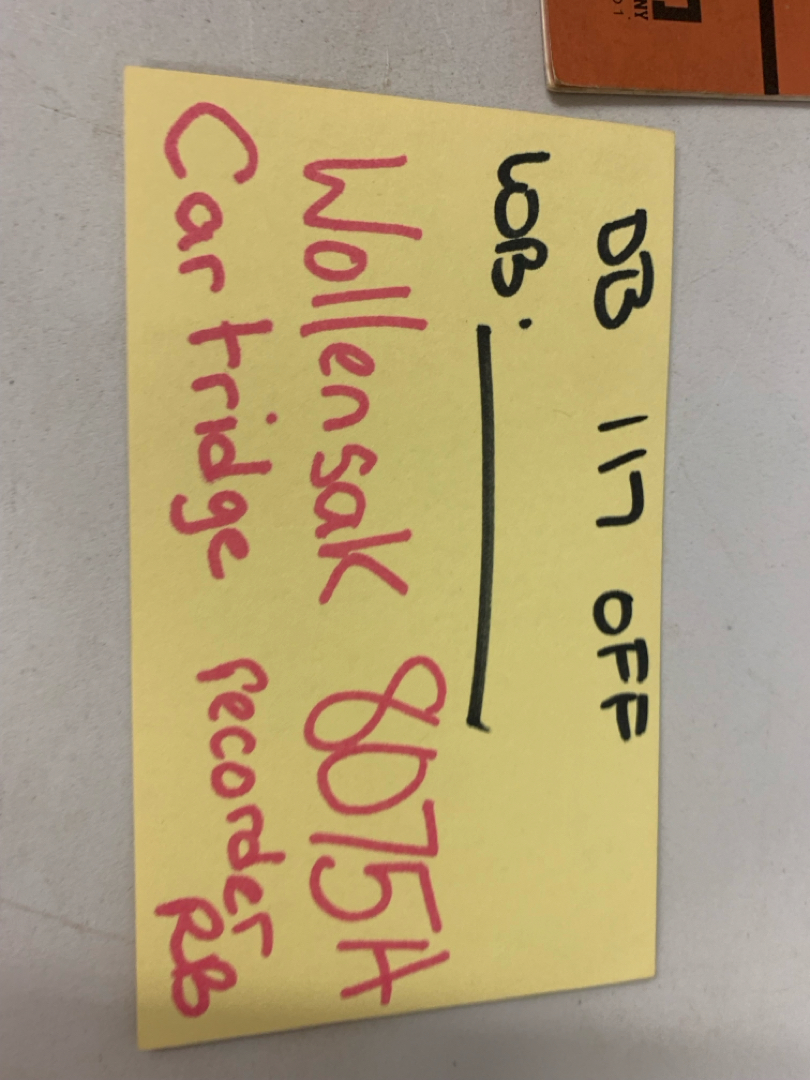 DB 117 OFF
LOB:
Wollensak 8075A
Cartridge recorder
RB
NY
01